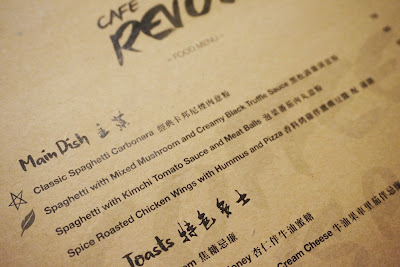 CAFE
REVO
~ FOOD MENU ~
Main Dish 主菜
Classic Spaghetti Carbonara 經典卡邦尼煙肉意粉
Spaghetti with Mixed Mushroom and Creamy Black Truffle Sauce
Spaghetti with Kimchi Tomato Sauce and Meat Balls 泡菜蕃茄肉丸意粉
Spice Roasted Chicken Wings with Hummus and Pizza
Toasts 特色多士
am 焦糖忌廉
oney 杏仁伴牛油蜜糖
Cream Cheese